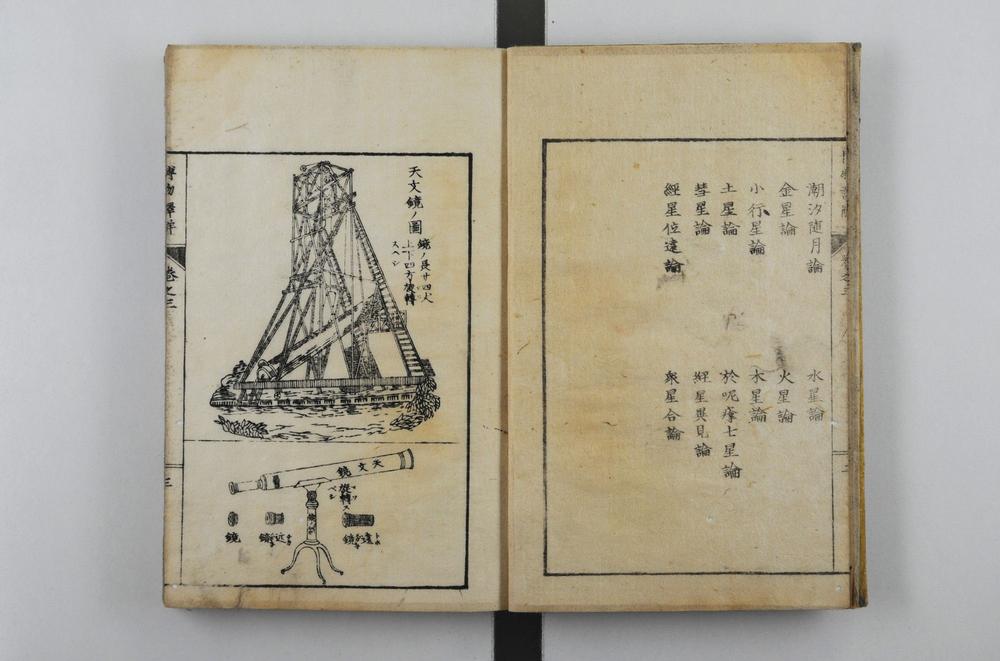 潮汐隨月論
水星論
金星論
火星論
小行星論
木星論
土星論
於呢痺士星論
彗星論
經星異見論
經星位遠論
衆星合論
天文鏡ノ圖
鏡ノ長サ四丈
上下四方旋轉
スヘシ
天文鏡
旋轉ス
ベシ
遠
鏡
近
鏡
鏡
卷之三
三